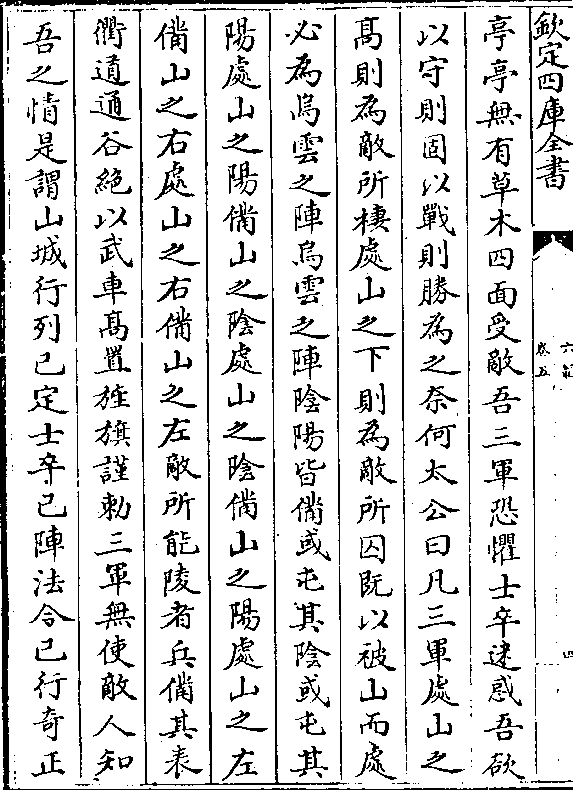 欽定四庫全書
六韜
卷五
四
亭亭無有草木四面受敵吾三軍恐懼士卒迷惑吾欲
以守則固以戰則勝為之奈何太公曰凡三軍處山之
髙則為敵所棲處山之下則為敵所囚既以被山而處
必為烏雲之陣烏雲之陣陰陽皆備或屯其陰或屯其
陽處山之陽備山之陰處山之陰備山之陽處山之左
備山之右處山之右備山之左敵所能陵者兵備其表
衢道通谷絶以武車髙置旌旗謹勅三軍無使敵人知
吾之情是謂山城行列已定士卒已陣法令已行奇正